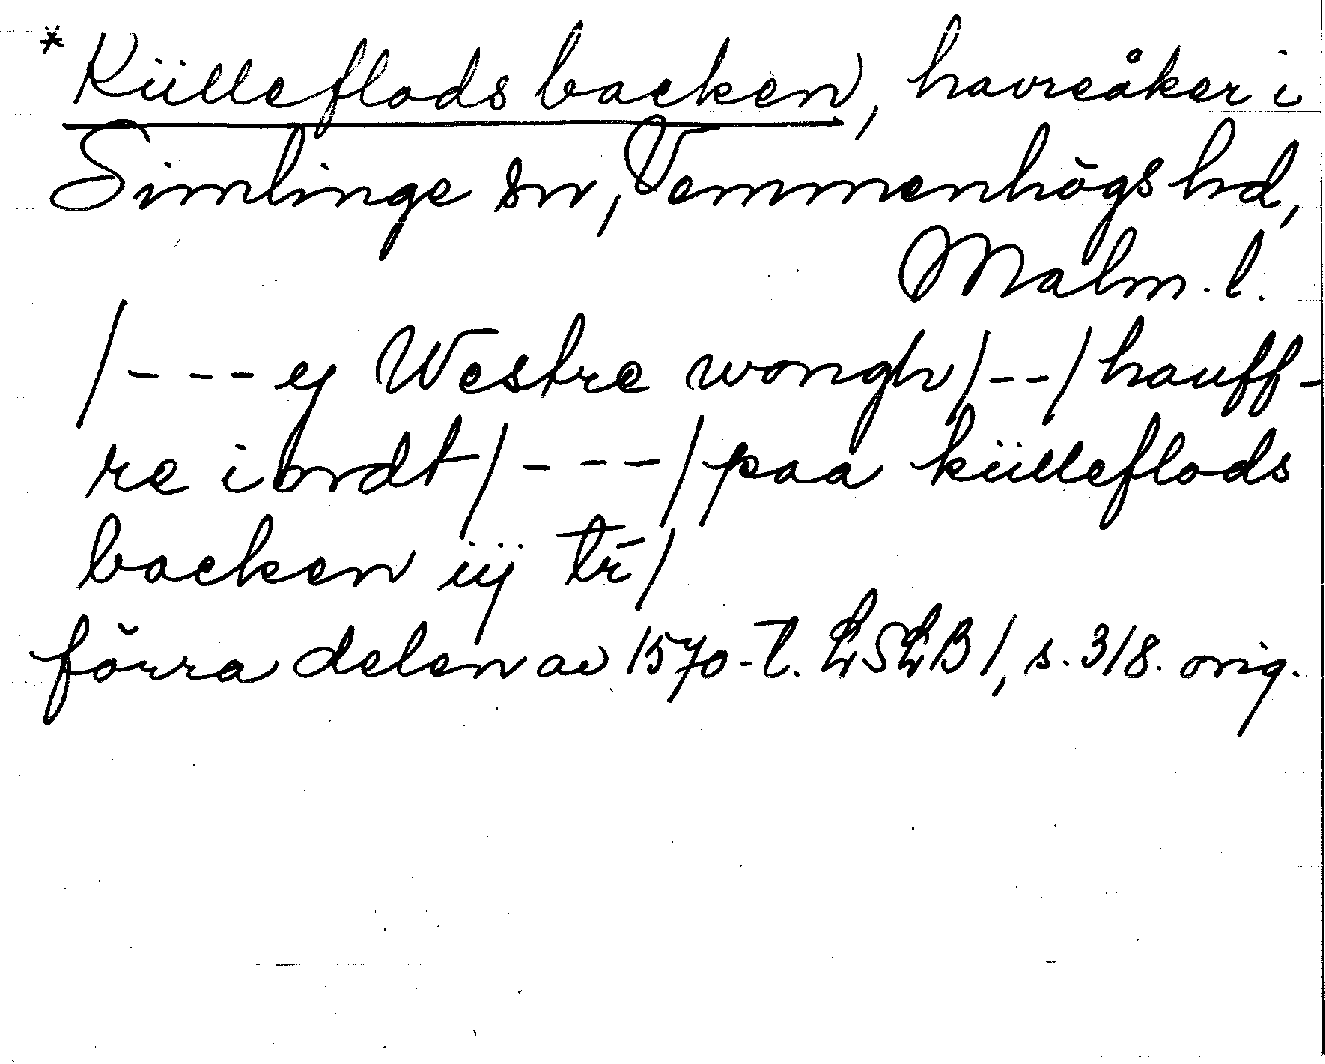 * Külleflods backen, havreåker i
Simlinge sn, Vemmenhögs hd,
Malm. l.
/---ej Westre wongh/--/hauff-
re iordt/---/paa külleflods
backen iij tr̄/
förra delen av 1570-t. LSLB 1, s. 318. orig.